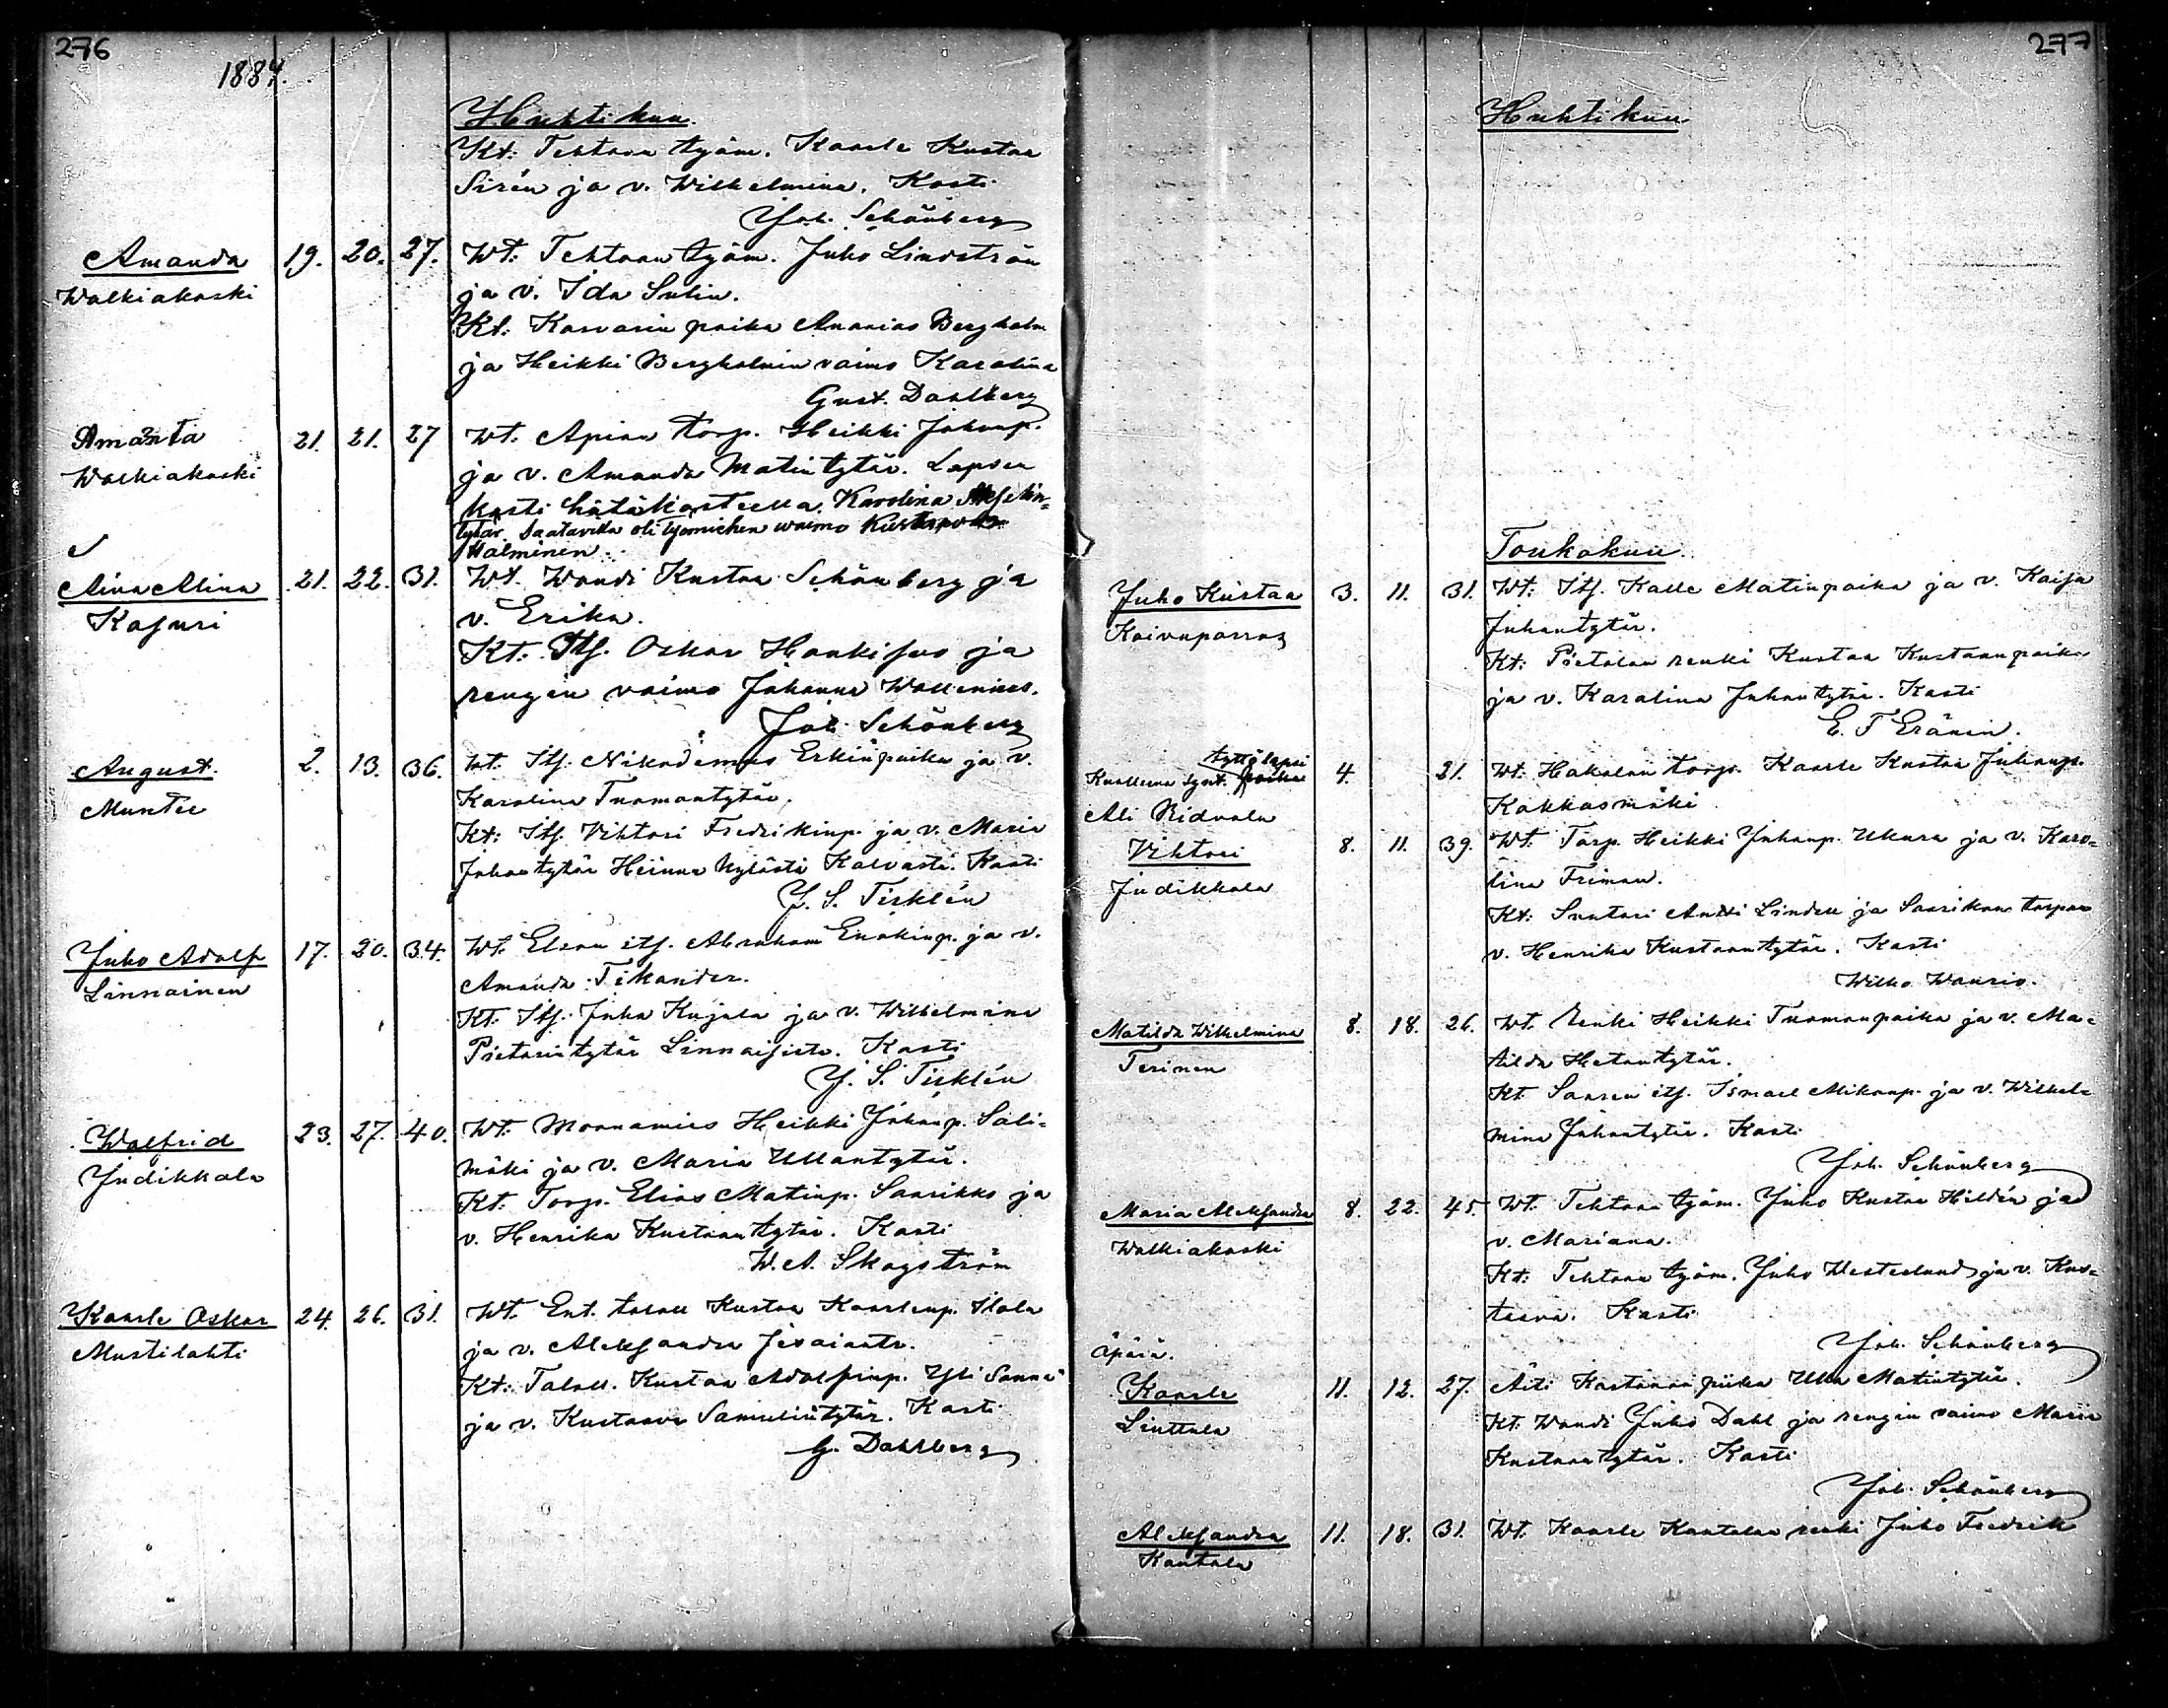 276
1884.
Huhtikuu.
Kt: Tehtaan työm. Kaarle Kustaa
Sirén ja v. Wilhelmina. Kasti
Joh. Schönberg
Amanda 19. 20. 27. Wt: Tehtaan työm. Juho Lindström
Walkiakoski ja v. Ida Sulin.
Kt: Karvarin poika Ananias Bergholm
ja Heikki Bergholmin vaimo Karolina
Gust. Dahlberg
Amanta 21. 21. 27 Wt. Apian torp. Heikki Juhanp.
Walkiakoski ja v. Amanda Matintytär. Lapsen
kasti hätäkasteella Karolina
tytär. Saatavilla oli työmiehen waimo Kustaava
Halminen.
Aina Alina 21. 22. 31. Wt. Woudi Kustaa Schönberg ja
Kasuri v. Erika.
Kt: Its. Oskar Honkisuo ja
rengin vaimo Johanna Wallenius.
Joh. Schönberg
August. 2. 13. 36. Wt. Its. Nikodemus Erkinpoika ja v.
Muntee Karolina Tuomaantytär.
Kt: Its. Vihtori Fredrikinp. ja v. Maria
Juhontytär Heinun kylästä Kalvasti. Kasti
J. S. Tirklén
Juho Adolf 17. 20. 34. Wt. Elson its. Abraham Enokinp. ja v.
Linnainen Amanda Tikander.
Kt. Its. Juha Kujala ja v. Wilhelmina
Pietarintytär Linnaisista. Kasti
J. S. Tirklén
Walfrid 23. 27. 40. Wt. Moonamies Heikki Juhanp. Sali-
Judikkala mäki ja v. Maria Ullantytär.
Kt: Torp. Elias Matinp. Saarikko ja
v. Henrika Kustaantytär. Kasti
W. A. Skogström
Kaarle Oskar 24. 26. 31. Wt. Ent. taloll. Kustaa Kaarlenp. Ilola
Mustilahti ja v. Aleksandra
Kt: Taloll. Kustaa Adolfinp. Yli Sanna
ja v. Kustaava Samulintytär. Kasti
G. Dahlberg
277
Huhtikuu
Toukokuu.
Juho Kustaa 3. 11. 31. Wt: Its. Kalle Matinpoika ja v. Kaisa
Juhantytär.
Kt: Pietolan renki Kustaa Kustaanpoika
ja v. Karolina Juhantytär. Kasti
E. T Eränen.
tyttölapsi
Kuolleena synt. poika 4. 21. Wt. Hakalan torp. Kaarle Kustaa Juhanp.
Ali Ridvala Kokkosmäki
Vihtori 8. 11. 39. Wt. Torp. Heikki Juhanp. Ukura ja v. Karo-
Judikkala lina Friman.
Kt: Suutari Antti Lindell ja Saarikon torpan
v. Henrika Kustaantytär. Kasti
Wilho Waurio.
Matilda Wilhelmina 8. 18. 26. Wt. Renki Heikki Tuomaanpoika ja v. Ma-
Terinen tilda Hetantytär.
Kt Saaren its. Ismael Mikonp. ja v. Wilhel-
mina Juhantytär. Kasti
Joh. Schönberg
Maria Aleksandra 8. 22. 45. Wt. Tehtaan työm. Juho Kustaa Hildén ja
Walkiakoski v. Mariana.
Kt: Tehtaan työm. Juho Westerlund ja v. Kus-
taava. Kasti
Joh. Schönberg
Äpärä.
Kaarle 11. 12. 27. Äiti Kastarin piika Ulla Matintytär.
Linttula Kt: Woudi Juho Dahl ja rengin vaimo Maria
Kustaantytär. Kasti
Joh. Schönberg
Aleksandra 11. 18. 31. Wt. Kaarle Kantolan renki Juho Fredrik
Kantola